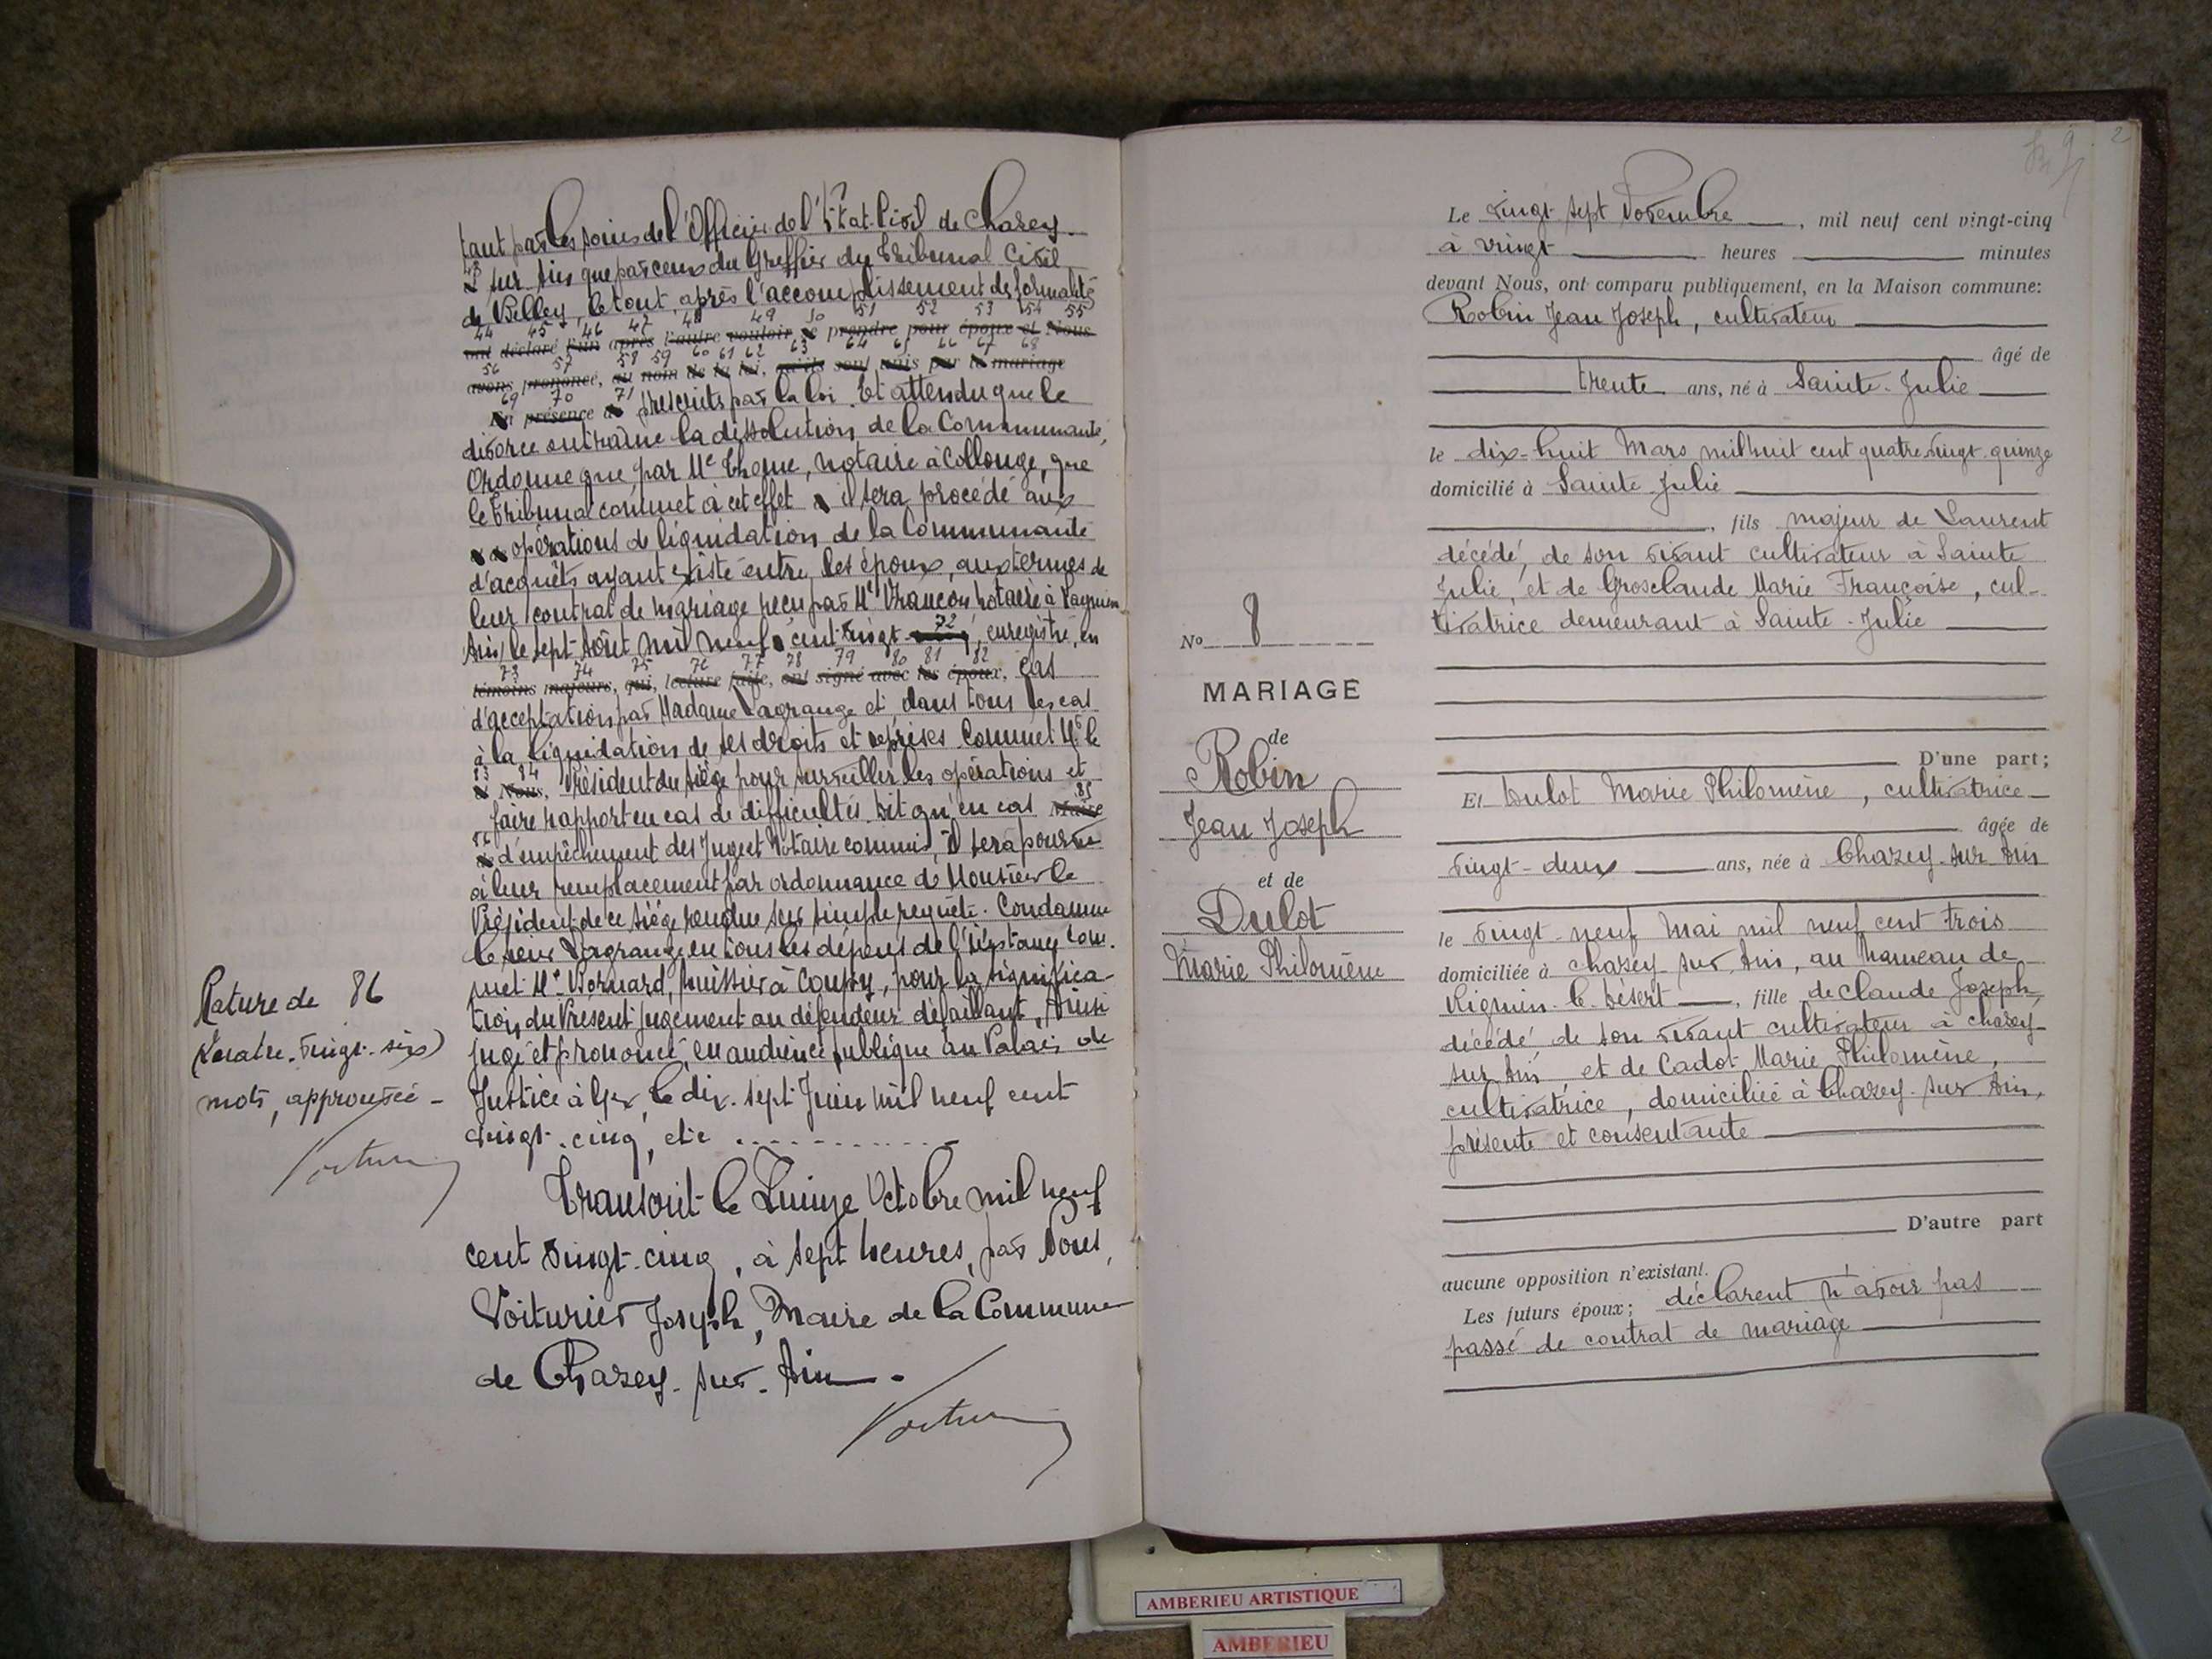 tant par les soins de l'Officier de l'Etat-Civil de Chazey
43
sur Ain que par ceux du Greffier du Tribunal Civil
de Belley, le tout, après l'accomplissement des formalités
44 45 46 47 48 49 50 51 52 53 54 55
ont déclaré l'un après l'autre vouloir se prendre pour époux et Nous
56 57 58 59 60 61 62 63 64 65 66 67 68
avons prononcé, au nom de la loi, qu'ils sont unis par le mariage
69 70 71
En présence de prescrits par la loi. Et attendu que le
divorce entraîne la dissolution de la Communauté,
Ordonne que, par Me Thome, notaire à Collonge, que
le Tribunal commet à cet effet il sera procédé aux
opérations de liquidation de la Communauté
d'acquêts ayant existé entre les époux, aux termes de
leur contrat de mariage reçu par Me Vrancon notaire à Lagnieu
Ain, le sept Août mil neuf cent vingt 72, enregistré, en
73 74 75 76 77 78 79 80 81 82
témoins majeurs, qui, lecture faite, ont signé avec les époux, cas
d'acceptation par Madame Lagrange et, dans tous les cas
à la liquidation de ses droits et reprises. Commet Mr le
83 84
et Nous, Président du siège pour surveiller les opérations et
faire rapport en cas de difficultés. Dit qu'en cas Maire 85
86
d'empêchement des Juge et Notaire commis, il sera pourvu
à leur remplacement par ordonnance de Monsieur le
Président de ce siège rendue sur simple requête. Condamne
le sieur Lagrange en tous les dépens de l'instance. Com-
met Me Bernard, huissier à Coupy, pour la significa-
tion du Présent jugement au défendeur défaillant. Ainsi
jugé et prononcé, en audience publique au Palais de
Justice à Gex, le dix-sept Juin mil neuf cent
vingt-cinq, etc ............
Transcrit le Quinze Octobre mil neuf
cent vingt-cinq, à sept heures, par Nous,
Voiturier Joseph, Maire de la Commune
de Chazey-sur-Ain.
Voiturier
Rature de 86
(Quatre-vingt-six)
mots, approuvée -
Voiturier
9 2
Le vingt sept Novembre, mil neuf cent vingt-cinq
à vingt heures minutes
devant Nous, ont comparu publiquement, en la Maison commune:
Robin Jean Joseph, cultivateur
âgé de
trente ans, né à Sainte-Julie
le dix-huit Mars mil huit cent quatre vingt quinze
domicilié à Sainte Julie
, fils majeur de Laurent
décédé, de son vivant cultivateur à Sainte
Julie, et de Grosclaude Marie Françoise, cul-
tivatrice demeurant à Sainte-Julie
No 8
MARIAGE
de
Robin
Jean Joseph
et de
Dulot
Marie Philomène
D'une part;
Et Dulot Marie Philomène, cultivatrice
âgée de
vingt-deux ans, née à Chazey-sur Ain
le vingt-neuf Mai mil neuf cent trois
domiciliée à Chazey sur Ain, au hameau de
Rignieu-le-Désert, fille de Claude Joseph,
décédé de son vivant cultivateur à Chazey
sur Ain, et de Cadot Marie Philomène,
cultivatrice, domiciliée à Chazey-sur Ain,
présente et consentante
D'autre part
aucune opposition n'existant.
Les futurs époux; déclarent n'avoir pas
passé de contrat de mariage
AMBERIEU ARTISTIQUE
AMBERIEU